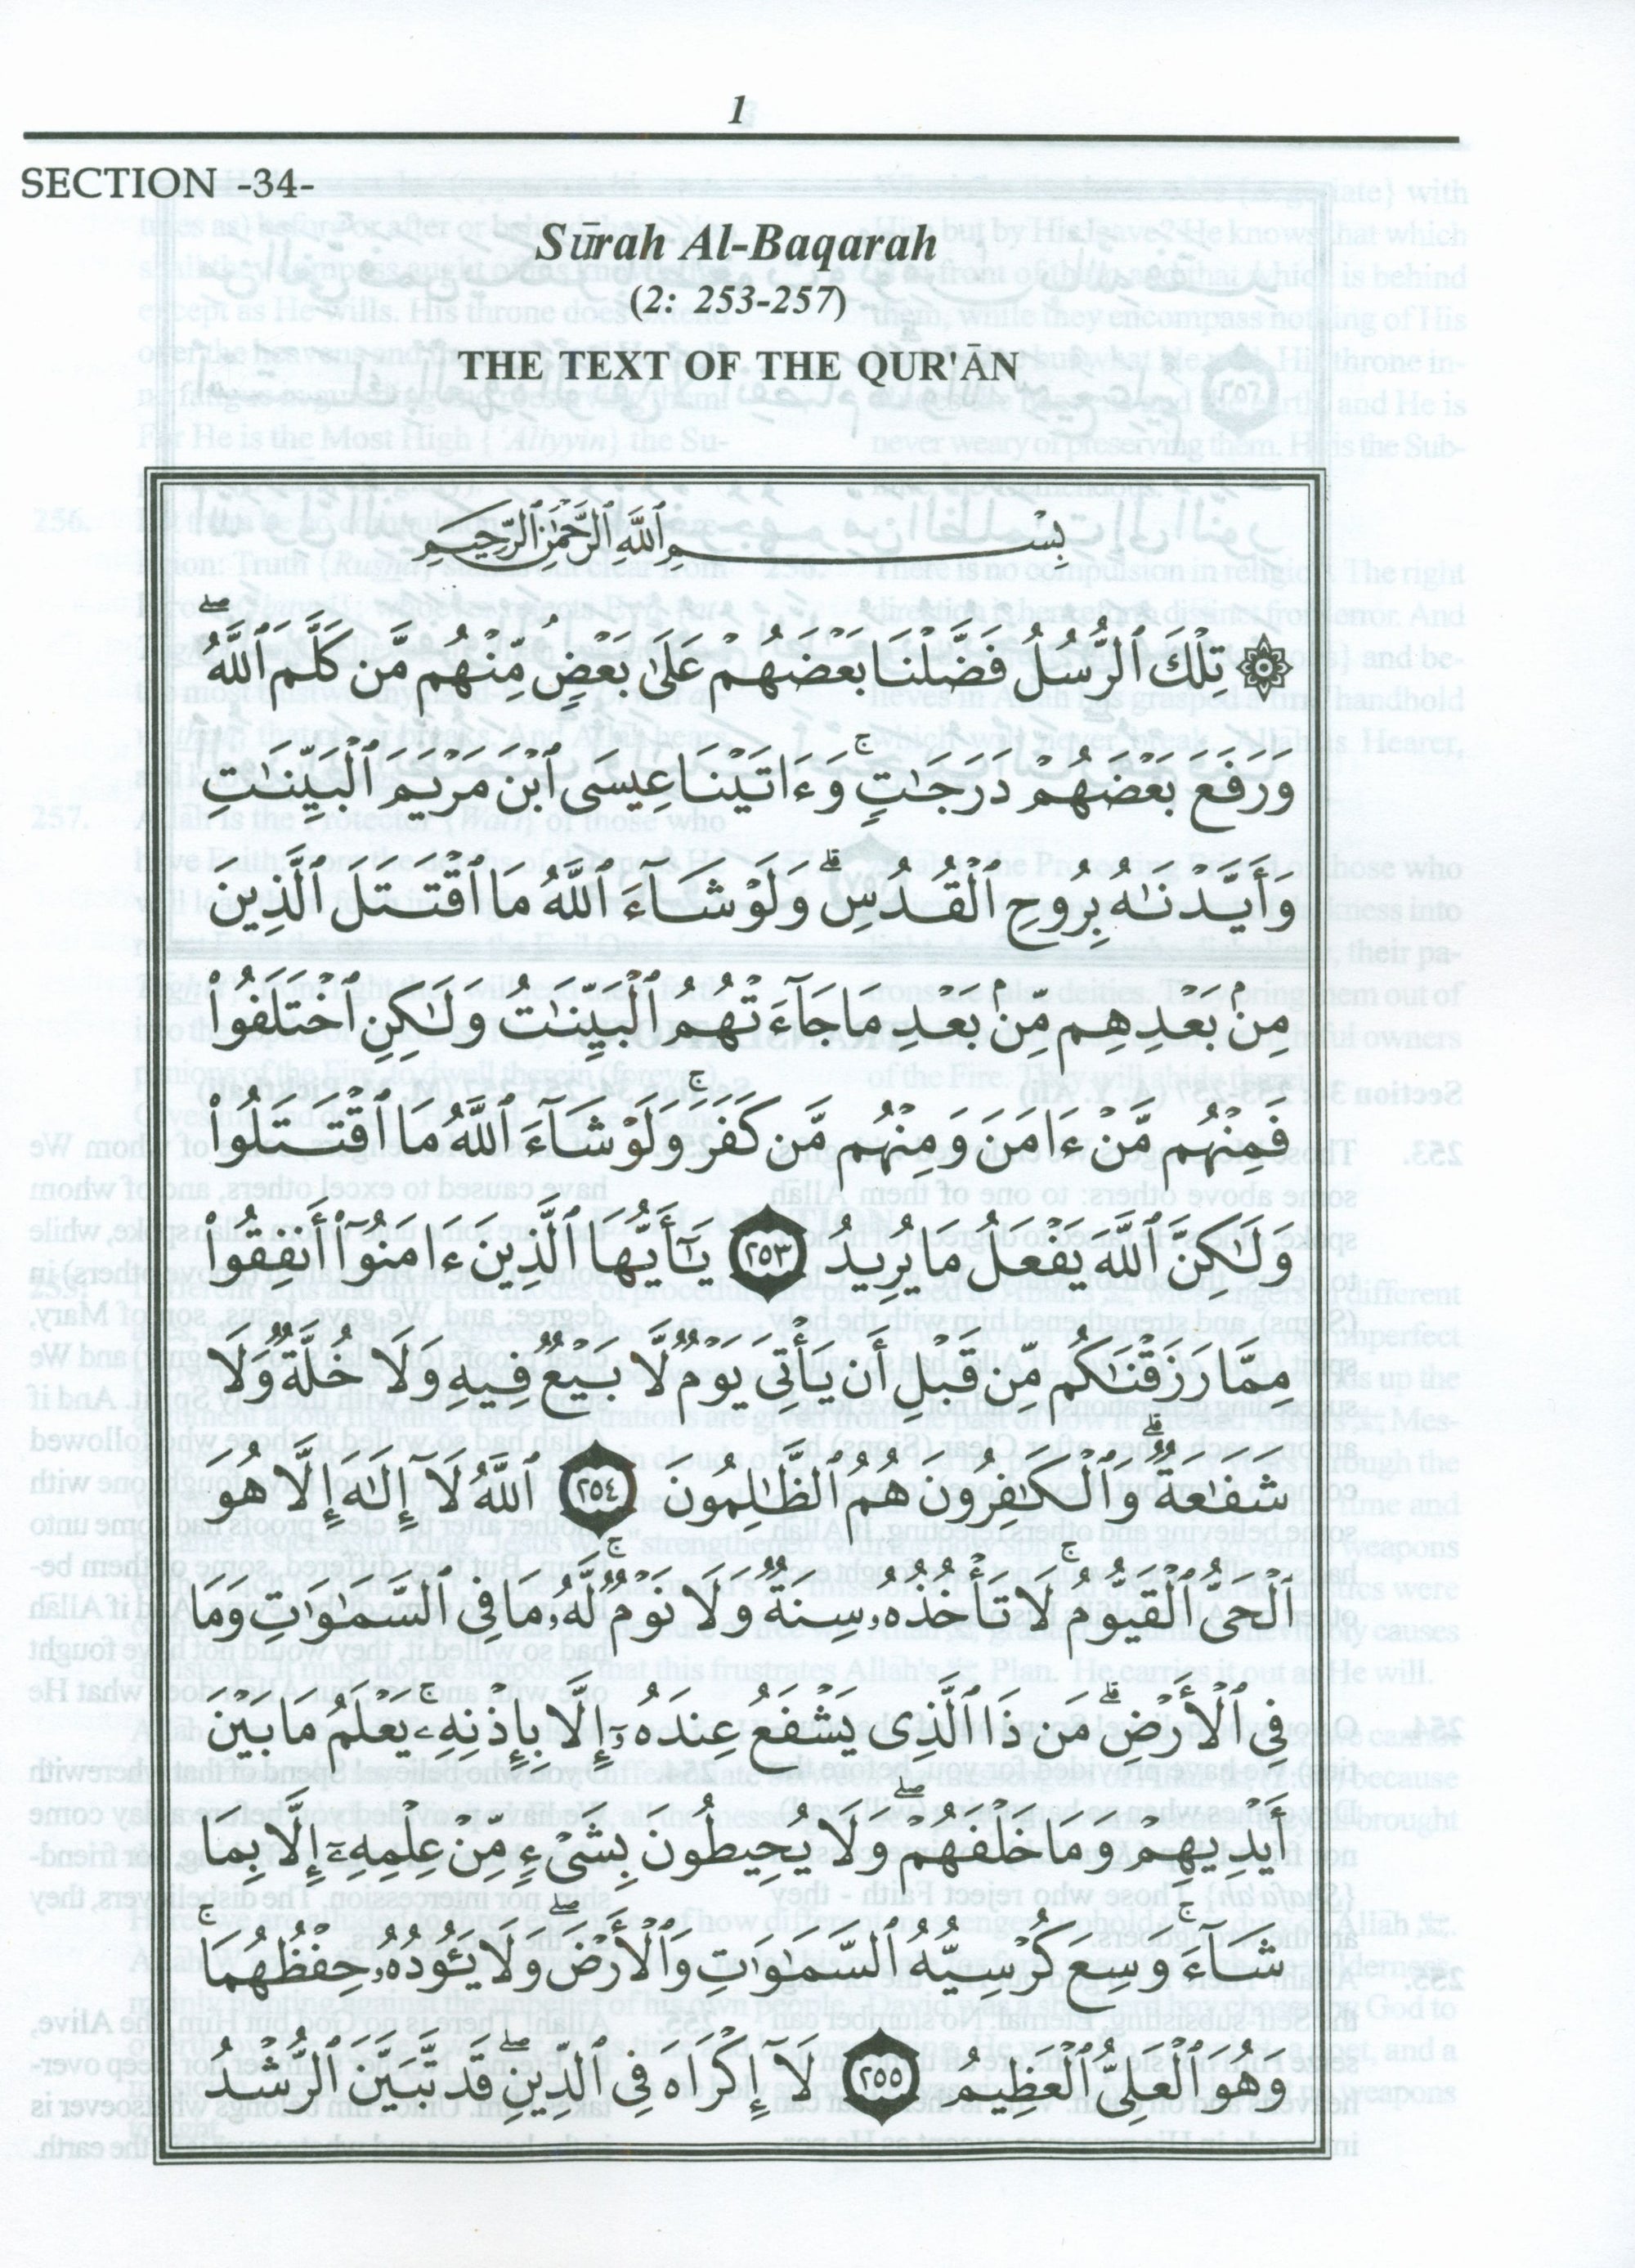 1
SECTION -34-
Sūrah Al-Baqarah
(2: 253-257)
THE TEXT OF THE QUR'ĀN
بِسْمِ ٱللَّهِ ٱلرَّحْمَٰنِ ٱلرَّحِيمِ
۞ تِلْكَ ٱلرُّسُلُ فَضَّلْنَا بَعْضَهُمْ عَلَىٰ بَعْضٍۢ مِّنْهُم مَّن كَلَّمَ ٱللَّهُ ۖ
وَرَفَعَ بَعْضَهُمْ دَرَجَـٰتٍۢ ۚ وَءَاتَيْنَا عِيسَى ٱبْنَ مَرْيَمَ ٱلْبَيِّنَـٰتِ
وَأَيَّدْنَـٰهُ بِرُوحِ ٱلْقُدُسِ ۗ وَلَوْ شَآءَ ٱللَّهُ مَا ٱقْتَتَلَ ٱلَّذِينَ
مِنۢ بَعْدِهِم مِّنۢ بَعْدِ مَا جَآءَتْهُمُ ٱلْبَيِّنَـٰتُ وَلَـٰكِنِ ٱخْتَلَفُوا۟
فَمِنْهُم مَّنْ ءَامَنَ وَمِنْهُم مَّن كَفَرَ ۚ وَلَوْ شَآءَ ٱللَّهُ مَا ٱقْتَتَلُوا۟
وَلَـٰكِنَّ ٱللَّهَ يَفْعَلُ مَا يُرِيدُ ٢٥٣ يَـٰٓأَيُّهَا ٱلَّذِينَ ءَامَنُوٓا۟ أَنفِقُوا۟
مِمَّا رَزَقْنَـٰكُم مِّن قَبْلِ أَن يَأْتِىَ يَوْمٌۭ لَّا بَيْعٌۭ فِيهِ وَلَا خُلَّةٌۭ وَلَا
شَفَـٰعَةٌۭ ۗ وَٱلْكَـٰفِرُونَ هُمُ ٱلظَّـٰلِمُونَ ٢٥٤ ٱللَّهُ لَآ إِلَـٰهَ إِلَّا هُوَ
ٱلْحَىُّ ٱلْقَيُّومُ ۚ لَا تَأْخُذُهُۥ سِنَةٌۭ وَلَا نَوْمٌۭ ۚ لَّهُۥ مَا فِى ٱلسَّمَـٰوَٰتِ وَمَا
فِى ٱلْأَرْضِ ۗ مَن ذَا ٱلَّذِى يَشْفَعُ عِندَهُۥٓ إِلَّا بِإِذْنِهِۦ ۚ يَعْلَمُ مَا بَيْنَ
أَيْدِيهِمْ وَمَا خَلْفَهُمْ ۖ وَلَا يُحِيطُونَ بِشَىْءٍۢ مِّنْ عِلْمِهِۦٓ إِلَّا بِمَا
شَآءَ ۚ وَسِعَ كُرْسِيُّهُ ٱلسَّمَـٰوَٰتِ وَٱلْأَرْضَ ۖ وَلَا يَـُٔودُهُۥ حِفْظُهُمَا ۚ
وَهُوَ ٱلْعَلِىُّ ٱلْعَظِيمُ ٢٥٥ لَآ إِكْرَاهَ فِى ٱلدِّينِ ۖ قَد تَّبَيَّنَ ٱلرُّشْدُ